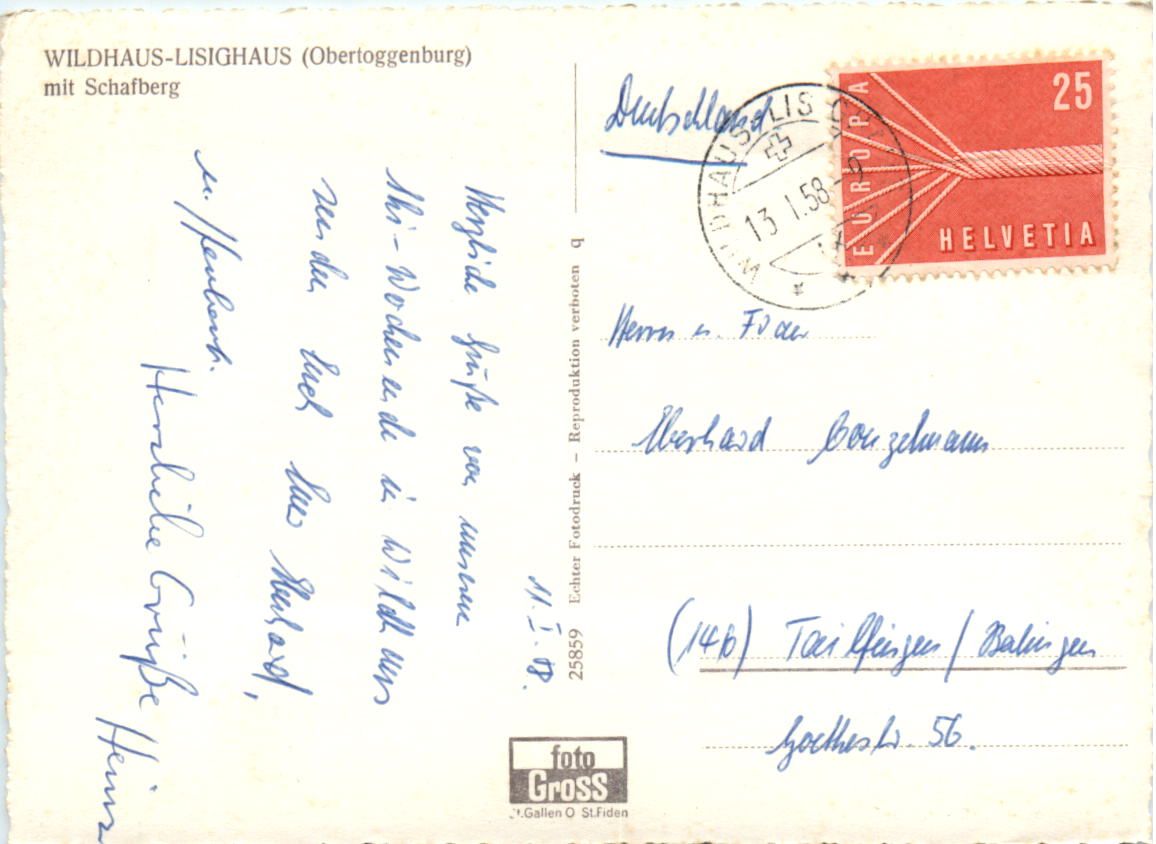 WILDHAUS-LISIGHAUS (Obertoggenburg)
mit Schafberg
11. I. 58.
Herzliche Grüße von unserem
Ski-Wochenende in Wildhaus
senden Euch Euer Eberhard,
u.
Herzliche Grüße Heinz
25859 Echter Fotodruck – Reproduktion verboten q
foto
Gross
St.Gallen O St.Fiden
Deutschland
WILDHAUS-LISIGHAUS
13. I. 58.-9
EUROPA
25
HELVETIA
Herrn u. Frau
Eberhard Conzelmann
(14b) Tailfingen / Balingen
Goethestr. 56.